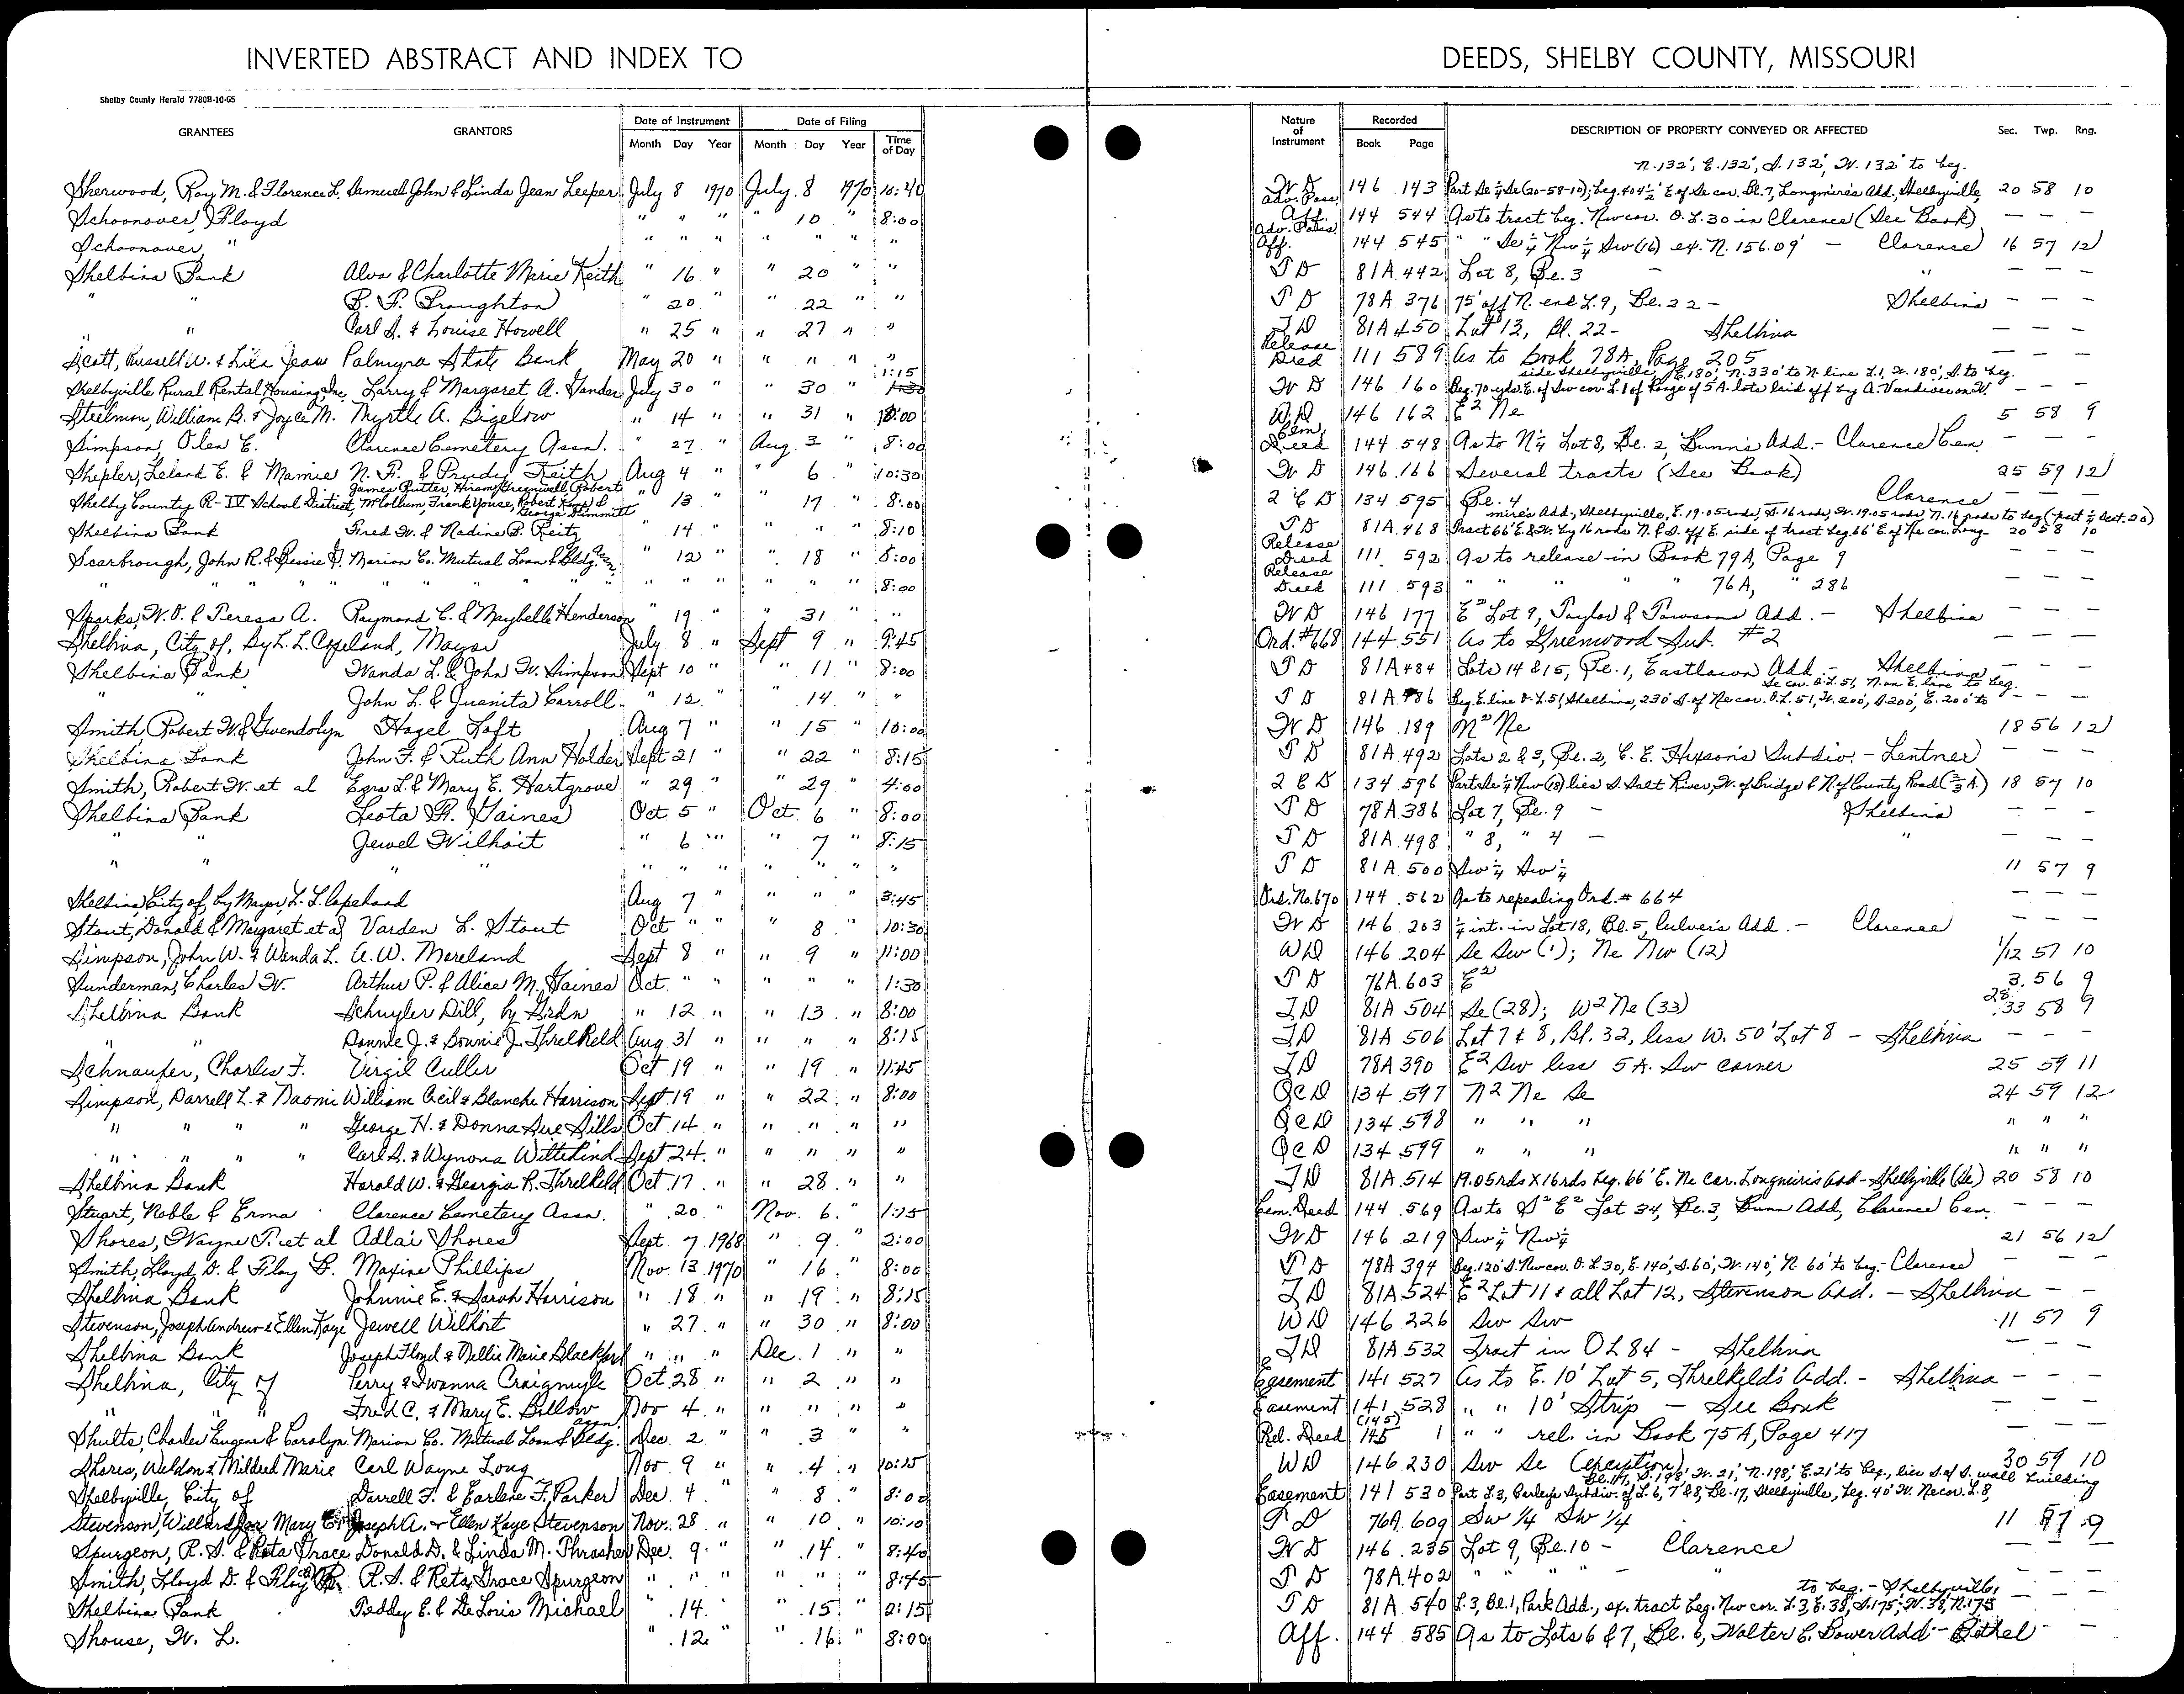 INVERTED ABSTRACT AND INDEX TO DEEDS, SHELBY COUNTY, MISSOURI
Shelby County Herald 7780B-10-65
GRANTEES GRANTORS Date of Instrument Date of Filing Nature of Instrument Recorded DESCRIPTION OF PROPERTY CONVEYED OR AFFECTED Sec. Twp. Rng.
Month Day Year Month Day Year Time of Day Book Page
N. 132', E. 132', S. 132', W. 132' to beg.
Sherwood, Roy M. & Florence L. Samuel John & Linda Jean Leeper July 8 1970 July 8 1970 10:40 W D 146 143 Part Se 1/4 Se (20-58-10); beg. 404 1/2' E of Se cor. Bl. 7, Longmire's Add., Shelbyville, 20 58 10
Schoonover, Floyd " " " " 10 " 8:00 Adv. Poss. Aff. 144 544 As to tract beg. Nw cor. O.L. 30 in Clarence (See Book) — — —
Schoonover, " " " " " " " " Adv. Poss. Aff. 144 545 " " Se 1/4 Nw 1/4 Sw (16) ex. N. 156.09' — Clarence 16 57 12
Shelbina Bank Alva & Charlotte Marie Keith " 16 " " 20 " " T D 81A 442 Lot 8, Bl. 3 — " — — —
" " B. F. Broughton " 20 " " 22 " " T D 78A 376 75' off N. end L. 9, Bl. 22 — Shelbina — — —
" " Carl S. & Louise Howell " 25 " " 27 " " T D 81A 450 Lot 13, Bl. 22 - Shelbina — — —
Scott, Russell W. & Lila Jean Palmyra State Bank May 20 " " " " " Release Deed 111 589 As to Book 78A, Page 205 — — —
side Shelbyville, E. 180', N. 330' to N. line L. 1, W. 180', S. to beg.
Shelbyville Rural Rental Housing Inc. Larry & Margaret A. Gander July 30 " " 30 " 1:15 W D 146 160 Beg. 70 yds. E. of Sw cor. L. 1 of Range of 5 A. lots laid off by A. Vandiver on W. — — —
Steelman, William B. & Joyce M. Myrtle A. Bigelow " 14 " " 31 " 8:00 W.D 146 162 E2 Ne 5 58 9
Simpson, Olen E. Clarence Cemetery Assn. " 27 " Aug. 3 " 8:00 Cem. Deed 144 548 As to N 1/4 Lot 8, Bl. 2, Bunn's Add. - Clarence Cem. — — —
Shepler, Leland E. & Mamie N. F. & Prudy Keith Aug 4 " " 6 " 10:30 W D 146 166 Several tracts (See Book) 25 59 12
Shelby County R-IV School District James Rutter, Hiram Greenwell, Robert McCollum, Frank Youse, Robert & George Dimmitt " 13 " " 17 " 8:00 2 C D 134 595 Bl. 4 Clarence — — —
mire's Add., Shelbyville, E. 19.05 rods, S. 16 rods, W. 19.05 rods, N. 16 rods to beg. (part 1/4 Sect. 20)
Shelbina Bank Fred W. & Nadine B. Reitz " 14 " " " " 8:10 T D 81A 468 Tract 66' E. & W. by 16 rods N. & S. off E. side of tract beg. 66' E. of Ne cor. Long- 20 58 10
Scarbrough, John R. & Bessie J. Marion Co. Mutual Loan & Bldg. Assn. " 12 " " 18 " 8:00 Release Deed 111 592 As to release in Book 79A, Page 9 — — —
" " " " " " " " " " " " " " 8:00 Release Deed 111 593 " " " " 76A, " 286 — — —
Sparks, W. O. & Teresa A. Raymond C. & Maybelle Henderson " 19 " " 31 " " W D 146 177 E2 Lot 9, Taylor & Towsons Add. — Shelbina — — —
Shelbina, City of, By L. L. Copeland, Mayor July 8 " Sept 9 " 9:45 Ord. #668 144 551 As to Greenwood Sub. #2 — — —
Shelbina Bank Wanda L. & John W. Simpson Sept 10 " " 11 " 8:00 T D 81A 484 Lots 14 & 15, Bl. 1, Eastlawn Add. — Shelbina — — —
Se cor. O.L. 51, N. on E. line to beg.
" " John L. & Juanita Carroll " 12 " " 14 " " T D 81A 486 Beg. E. line O.L. 51, Shelbina, 230' S. of Ne cor. O.L. 51, W. 200', S. 200', E. 200' to — — —
Smith, Robert W. & Gwendolyn Hazel Toft Aug 7 " " 15 " 10:00 W D 146 189 N2 Ne 18 56 12
Shelbina Bank John F. & Ruth Ann Holder Sept 21 " " 22 " 8:15 T D 81A 492 Lots 2 & 3, Bl. 2, C. E. Hixson's Subdiv. - Lentner — — —
Smith, Robert W. et al Ezra L. & Mary E. Hartgrove " 29 " " 29 " 4:00 2 C D 134 596 Part Se 1/4 Nw (18) lies S. Salt River, W. of Bridge & N. of County Road (2/3 A.) 18 57 10
Shelbina Bank Leota R. Gaines Oct 5 " Oct 6 " 8:00 T D 78A 386 Lot 7, Bl. 9 — Shelbina — — —
" " Jewel Wilhoit " 6 " " 7 " 8:15 T D 81A 498 " 8, " 4 — " — — —
" " " " " " " " " " " T D 81A 500 Sw 1/4 Sw 1/4 11 57 9
Shelbina, City of, by Mayor, L. L. Copeland Aug 7 " " " " 3:45 Ord. No. 670 144 562 As to repealing Ord. # 664 — — —
Stout, Donald & Margaret et al Varden L. Stout Oct " " " 8 " 10:30 W D 146 203 1/4 int. in Lot 18, Bl. 5, Culver's Add. — Clarence — — —
Simpson, John W. & Wanda L. A. W. Moreland Sept 8 " " 9 " 11:00 W D 146 204 Se Sw (1); Ne Nw (12) 1/12 57 10
Sunderman, Charles W. Arthur P. & Alice M. Haines Oct. " " " " " 1:30 T D 76A 603 E2 3 56 9
Shelbina Bank Schuyler Dill, by Grdn " 12 " " 13 " 8:00 T D 81A 504 Se (28); W2 Ne (33) 28 33 58 9
" " Donnie J. & Bonnie J. Threlkeld Aug 31 " " " " 8:15 T D 81A 506 Lot 7 & 8, Bl. 32, less W. 50' Lot 8 — Shelbina — — —
Schnaufer, Charles F. Virgil Culler Oct 19 " " 19 " 11:45 T D 78A 390 E2 Sw less 5 A. Sw corner 25 59 11
Simpson, Darrell L. & Naomi William Cecil & Blanche Harrison Sept. 19 " " 22 " 8:00 Q C D 134 597 N2 Ne Se 24 59 12
" " " " George H. & Donna Sue Sills Oct 14 " " " " " Q C D 134 598 " " " " " "
" " " " Carl S. & Wynona Wittekind Sept 24 " " " " " Q C D 134 599 " " " " " "
Shelbina Bank Harold W. & Georgia R. Threlkeld Oct 17 " " 28 " " T D 81A 514 19.05 rds X 16 rds beg. 66' E. Ne cor. Longmire's Add - Shelbyville (Se) 20 58 10
Stuart, Noble & Erma Clarence Cemetery Assn. " 20 " Nov. 6 " 1:15 Cem. Deed 144 569 As to S2 E2 Lot 34, Bl. 3, Bunn Add, Clarence Cem. — — —
Shores, Wayne P. et al Adlai Shores Sept. 7 1968 " 9 " 2:00 W D 146 219 Sw 1/4 Nw 1/4 21 56 12
Smith, Lloyd D. & Floy B. Maxine Phillips Nov. 13 1970 " 16 " 8:00 T D 78A 394 Beg. 120' S. Nw cor. O.L. 30, E. 140', S. 60', W. 140', N. 60' to beg. - Clarence — — —
Shelbina Bank Johnnie E. & Sarah Harrison " 18 " " 19 " 8:15 T D 81A 524 E2 Lot 11 & all Lot 12, Stevenson Add. — Shelbina — —
Stevenson, Joseph Andrew & Ellen Kaye Jewell Wilhoit " 27 " " 30 " 8:00 W D 146 226 Sw Sw 11 57 9
Shelbina Bank Joseph Floyd & Nellie Marie Blackford " " " Dec. 1 " " T D 81A 532 Tract in OL 84 - Shelbina — —
Shelbina, City of Perry & Iwanna Craigmyle Oct 28 " " 2 " " Easement 141 527 As to E. 10' Lot 5, Threlkeld's Add. - Shelbina — — —
" " " Fred C. & Mary E. Billow Nov 4 " " " " " Easement 141 528 " " 10' Strip — See Book — — —
Shults, Charles Eugene & Carolyn Marion Co. Mutual Loan & Bldg. Assn. Dec. 2 " " 3 " " Rel. Deed (145) 145 1 " " rel. in Book 75A, Page 417 — — —
Shores, Weldon & Mildred Marie Carl Wayne Long Nov 9 " " 4 " 10:15 W D 146 230 Sw Se (exception) 30 59 10
Bl. 17, S. 198', W. 21', N. 198', E. 21' to beg., lies S. of S. wall building
Shelbyville, City of Darrell F. & Earlene F. Parker Dec. 4 " " 8 " 8:00 Easement 141 530 Part L. 3, Subdiv. of L. 6, 7 & 8, Bl. 17, Shelbyville, beg. 40' W. Ne cor. L. 8,
Stevenson, Willard & Mary Joseph A. & Ellen Kaye Stevenson Nov. 28 " " 10 " 10:10 T D 76A 609 Sw 1/4 Sw 1/4 11 57 9
Spurgeon, R. S. & Reta Grace Donald D. & Linda M. Thrasher Dec. 9 " " 14 " 8:40 W D 146 235 Lot 9, Bl. 10 — Clarence — — —
Smith, Lloyd D. & Floy B. R. S. & Reta Grace Spurgeon " " " " " " 8:45 T D 78A 402 " " " " - " — — —
to beg. - Shelbyville
Shelbina Bank Teddy E. & DeLoris Michael " 14 " 15 " 2:15 T D 81A 540 L. 3, Bl. 1, Park Add., ex. tract beg. Nw cor. L. 3, E. 38', S. 175', W. 38', N. 175' — — —
Shouse, W. L. " 12 " " 16 " 8:00 Aff. 144 585 As to Lots 6 & 7, Bl. 6, Walter C. Bower Add — Bethel — —